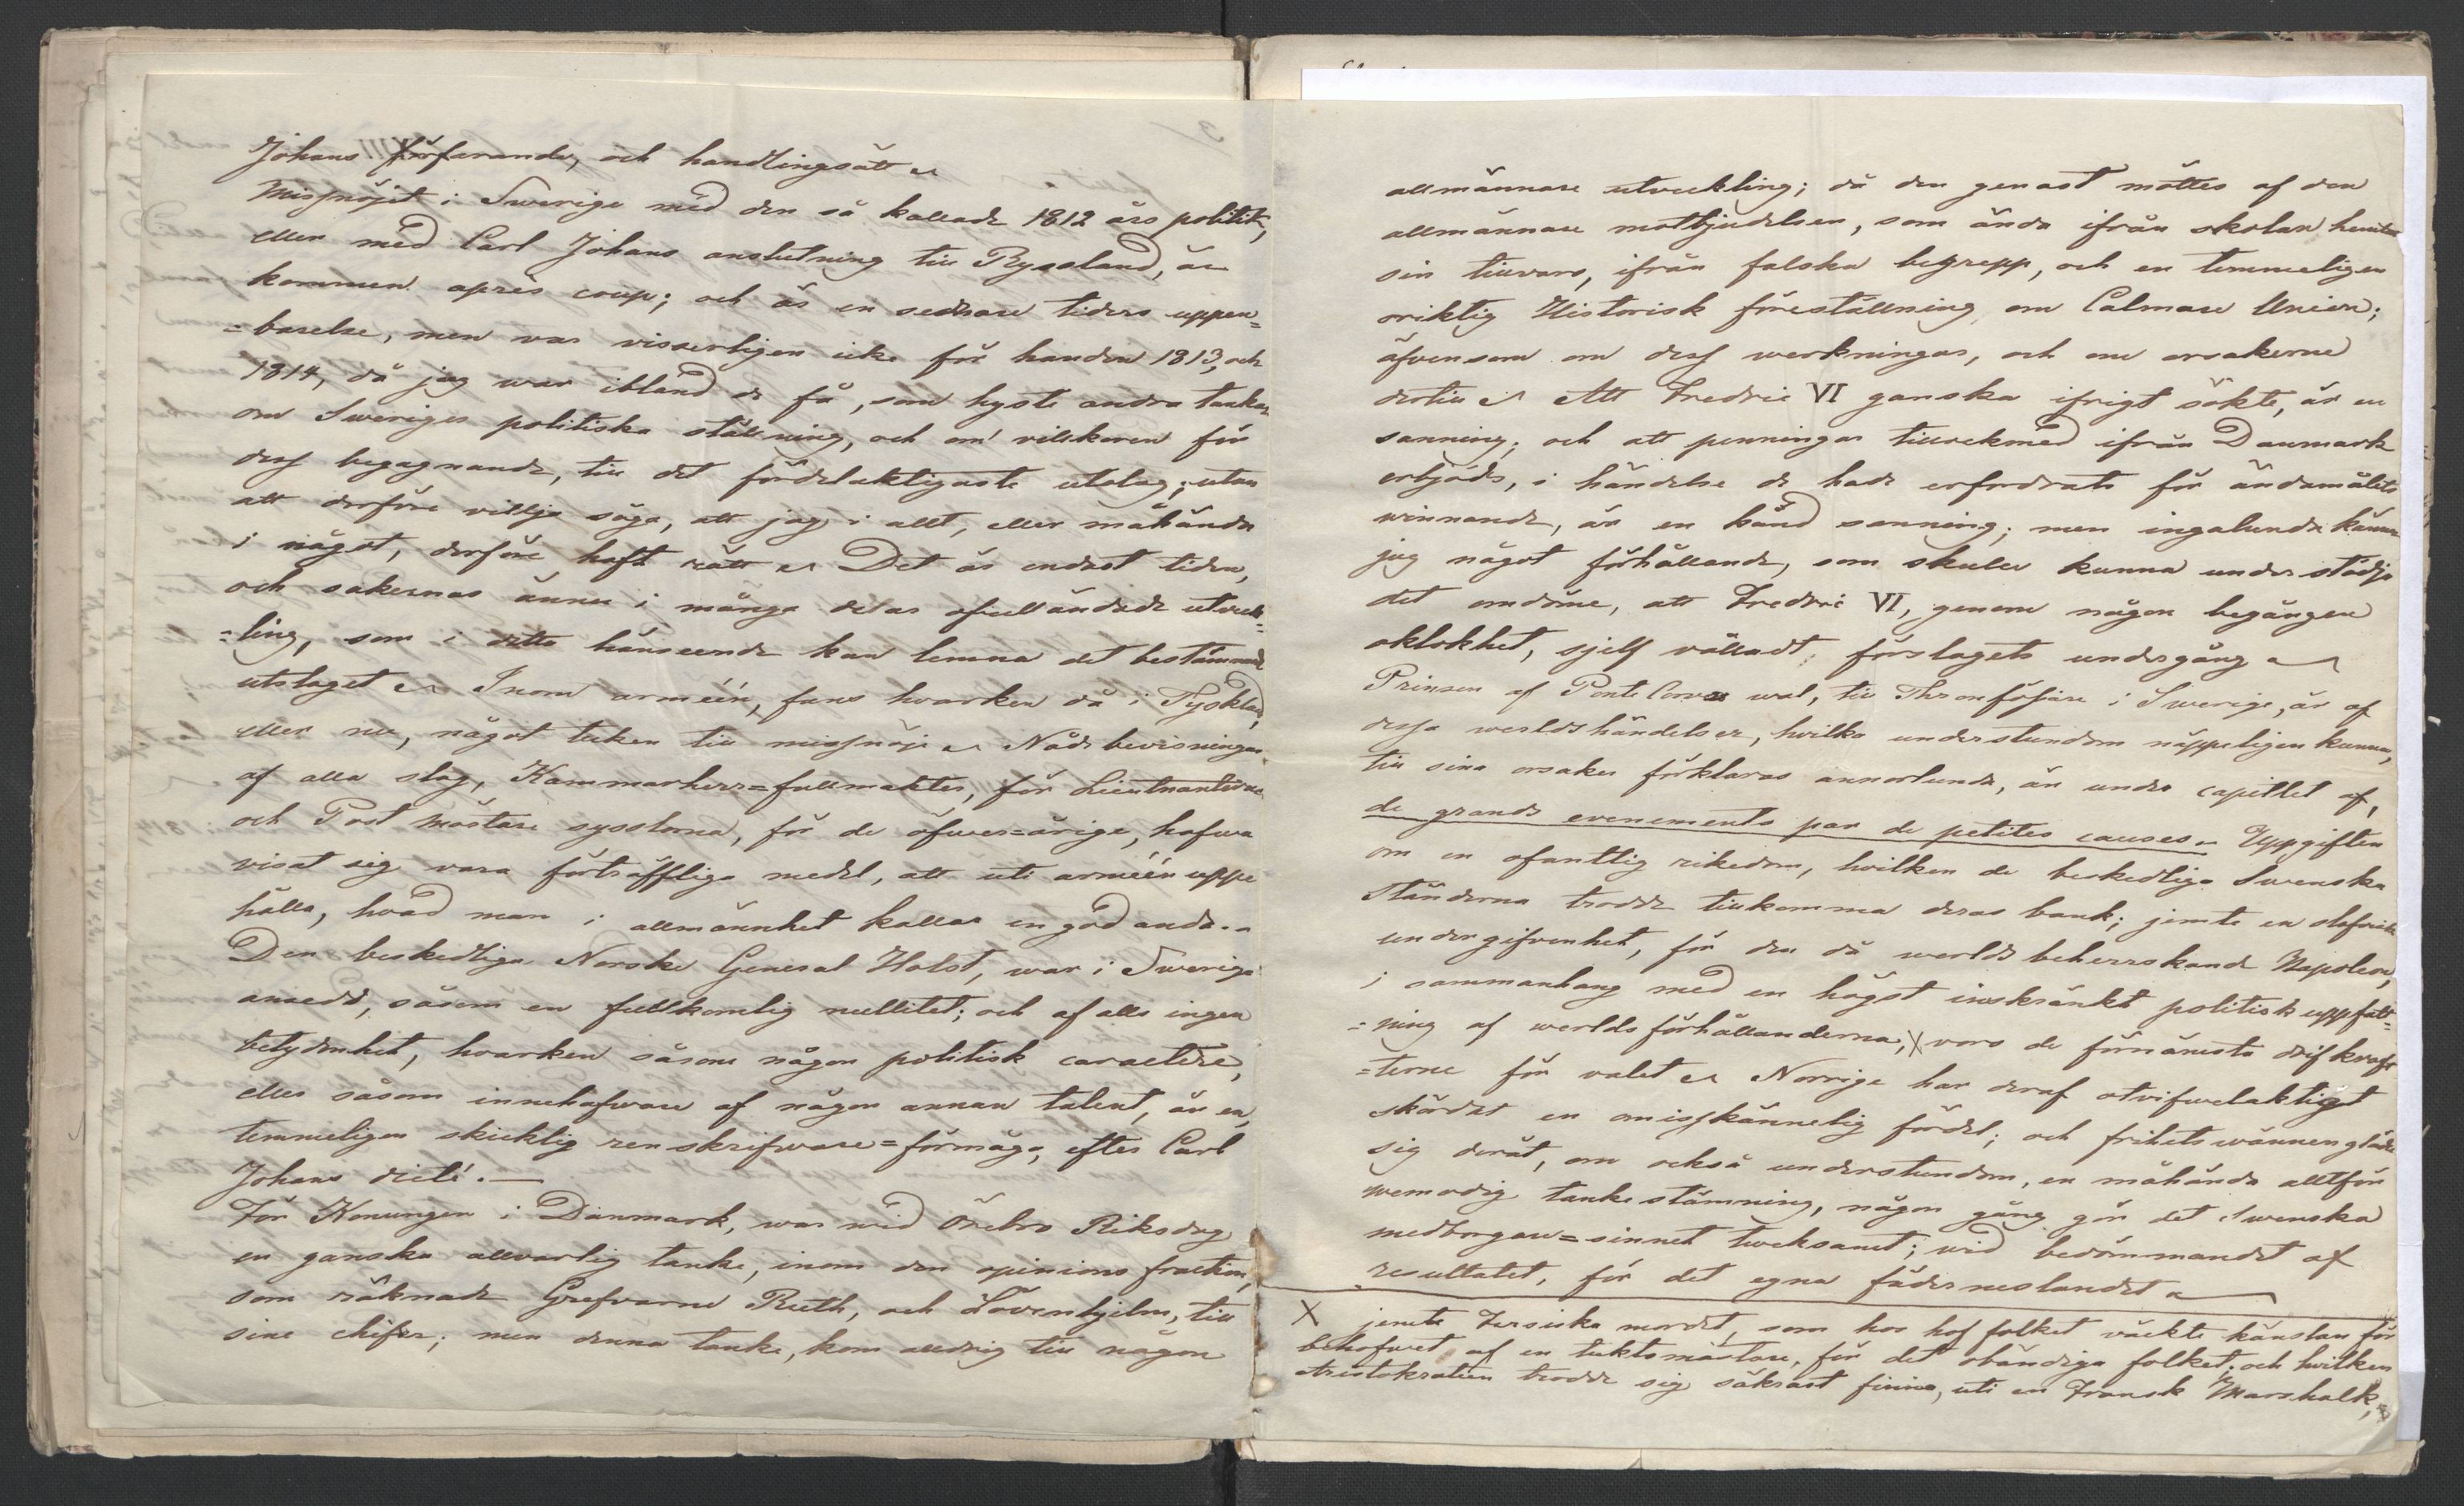 Johans förfarande, och handlingsätt
Missnöjet i Swerige med den så kallade 1812 års politik,
eller med Carl Johans anslutning till Ryssland, är
kommen après coup; och är en sednare tiders uppen-
=barelse, men war visserligen icke för handen 1813, och
1814, då jag war ibland de få, som hyste andra tankar
om Sweriges politiska ställning, och om villkoren för
dess begagnande, till det fördelaktigaste utslag; utan
att derföre villja säga, att jag i allt, eller måhända
i något, derföre haft rätt Det är endast tiden,
och sakernas ännu i många delar ofulländade utveck=
=ling, som i detta hänseende kan lemna det bestämmande
utslaget Inom arméen, fans hvarken då i Tyskland,
eller nu, något tecken till missnöje Nådsbevisningar
af alla slag, Kammarherr=fullmakter, för Lieutnanterne
och Post mästare sysslorna, för de öfwer=årige, hafwa
visat sig vara förträffliga medel, att uti arméen uppe
hålla, hvad man i allmännhet kallar en god anda.
Den beskedliga Norske General Holst, war i Swerige
ansedd, såsom en fullkomlig nullitet; och af alls ingen
betydenhet, hvarken såsom någon politisk caractere,
eller såsom innehafware af någon annan talent, än en,
temmeligen skicklig renskrifware=förmåga, efter Carl
Johans dicté.
För Konungen i Danmark, war wid Örebro Riksdag
en ganska allvarlig tanke, inom den opinions fraction,
som räknade Grefvarne Ruth, och Löwenhjelm, till
sine chefer; men denna tanke, kom alldrig till någon
allmännare utveckling; då den genast möttes af den
allmännare motbjudelsen, som ända ifrån skolan
sin tillvaro, ifrån falska begrepp, och en temmeligen
oriktig Historisk föreställning om Calmare Union;
äfvensom om dess werkningar, och om orsakerne
dertill Att Fredric VI ganska ifrigt sökte, är en
sanning; och att penningar tillräckmed ifrån Danmark
erbjöds, i händelse de hade erfordrats för ändamålets
winnande, är en känd sanning; men ingalunda känner
jag något förhållande, som skulle kunna understödja
det omdöme, att Fredric VI, genom någon begången
oklokhet, sjelf vålladt förslagets undergång
Prinsen af Ponte Corvos wal, till Thronföljare i Swerige, är af
dessa werldshändelser, hvilka understundom näppeligen kunna,
till sina orsaker förklaras annorlunda, än under capitlet af,
de grands evenements par de petites causes. Uppgiften
om en ofantlig rikedom, hvilken de beskedliga Swenska
Ständerna trodde tillkomma deras bank; jemte en slafvisk
undergifvenhet, för den då werlds beherrskande Napoleon,
i sammanhang med en högst inskränkt politisk uppfatt=
=ning af werlds förhållanderna, X voro de förnämsta drifkraf-
=terne för valet Norrige har deraf otvifwelaktigt
skördat en omisskännelig fördel; och frihetswännen gläder
sig deråt, om också understundom, en måhända alltför
wemodig tanke stämning, någon gång gör det Swenska
medborgare=sinnet tveksamt; wid bedömmandet af
resultatet, för det egna fäderneslandet
X jemte Fersiska mordet, som hos hof folket väckte känslan för
behofwet af en tuktomästare, för det obändiga folket; och hwilken
Aristokratien trodde sig säkrast finna, uti en Fransk Marshalk,